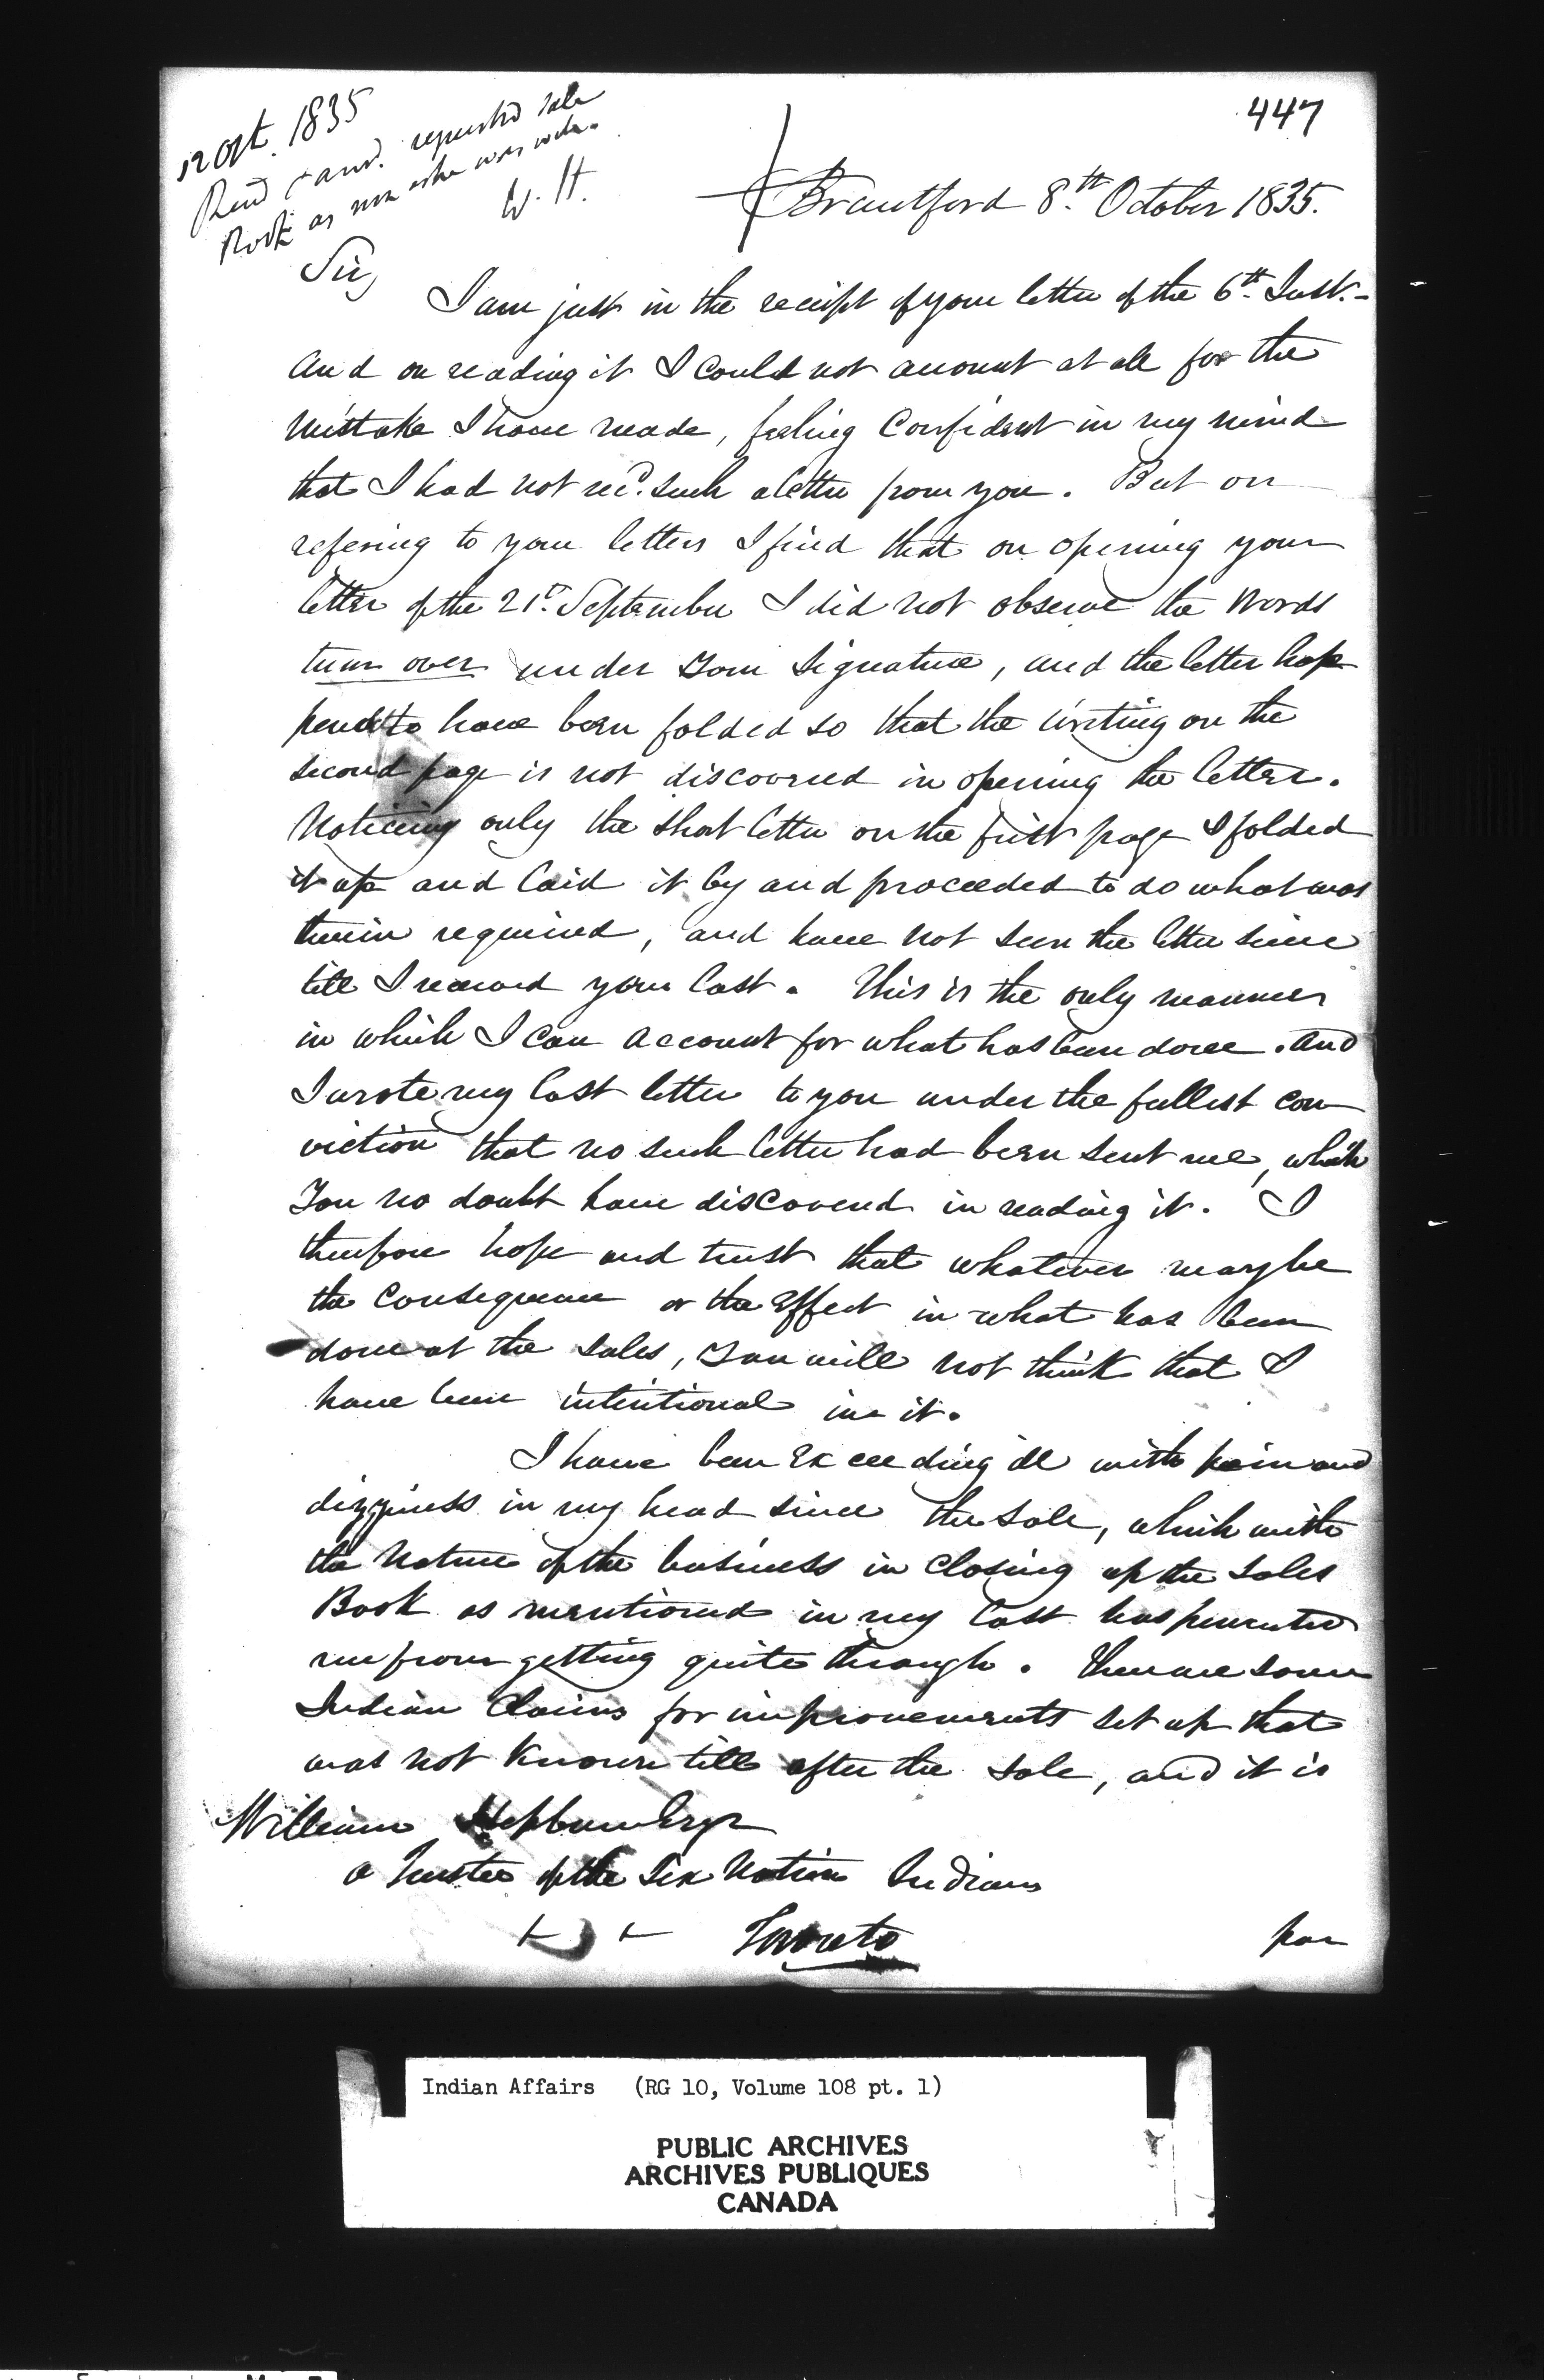 447
12 Oct. 1835
Recd & ansd. requested Sale
Book as now as he was note.
W. H.
Brantford 8th. October 1835.
Sir,
I am just in the receipt of your letter of the 6th. Inst. -
And on reading it I could not account at all for the
Mistake I have made, feeling Confident in my mind
that I had not recd. such a letter from you. But on
refering to your letters I find that on opening your
letter of the 21st. September I did not observe the Words
turn over under Your Signature, and the letter hap
pened to have been folded so that the writing on the
second page is not discovered in opening the letter.
Noticeing only the short letter on the first page I folded
it up and laid it by and proceeded to do what was
therein required, and have not seen the letter since
till I received your last. This is the only manner
in which I can account for what has been done. And
I wrote my last letter to you under the fullest con
viction that no such letter had been sent me, which
You no doubt have discovered in reading it. I
therefore hope and trust that whatever may be
the Consequence or the Effect in what has been
done at the sales, You will not think that I
have been intentional in it.
I have been Exceeding ill with pain and
dizziness in my head since the sale, which with
the Nature of the business in Closing up the Sales
Book as mentioned in my last has prevented
me from getting quite through. There are some
Indian Claims for improvements set up that
was not Known till after the sale, and it is
William Hepburn Esqr
a Trustee of the Six Nation Indians
Toronto
par
Indian Affairs (RG 10, Volume 108 pt. 1)
PUBLIC ARCHIVES
ARCHIVES PUBLIQUES
CANADA